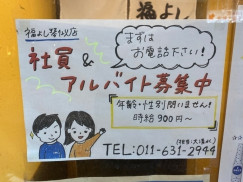 福よし琴似店
まずは
お電話下さい!
社員&
アルバイト募集中
年齢・性別問いません!
時給900円〜
TEL:011-631-2944